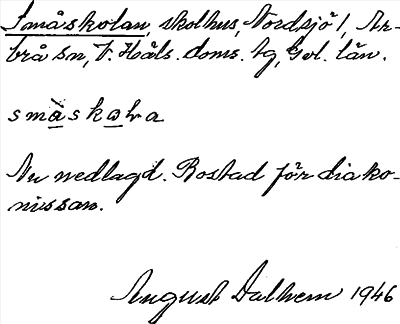 Småskolan, skolhus, Nordsjö 1, Ar-
brå sn, V. Häls. doms. tg, Gvl. län.
småskola
Nu nedlagd. Bostad för diako-
nissan.
August Dalhem 1946